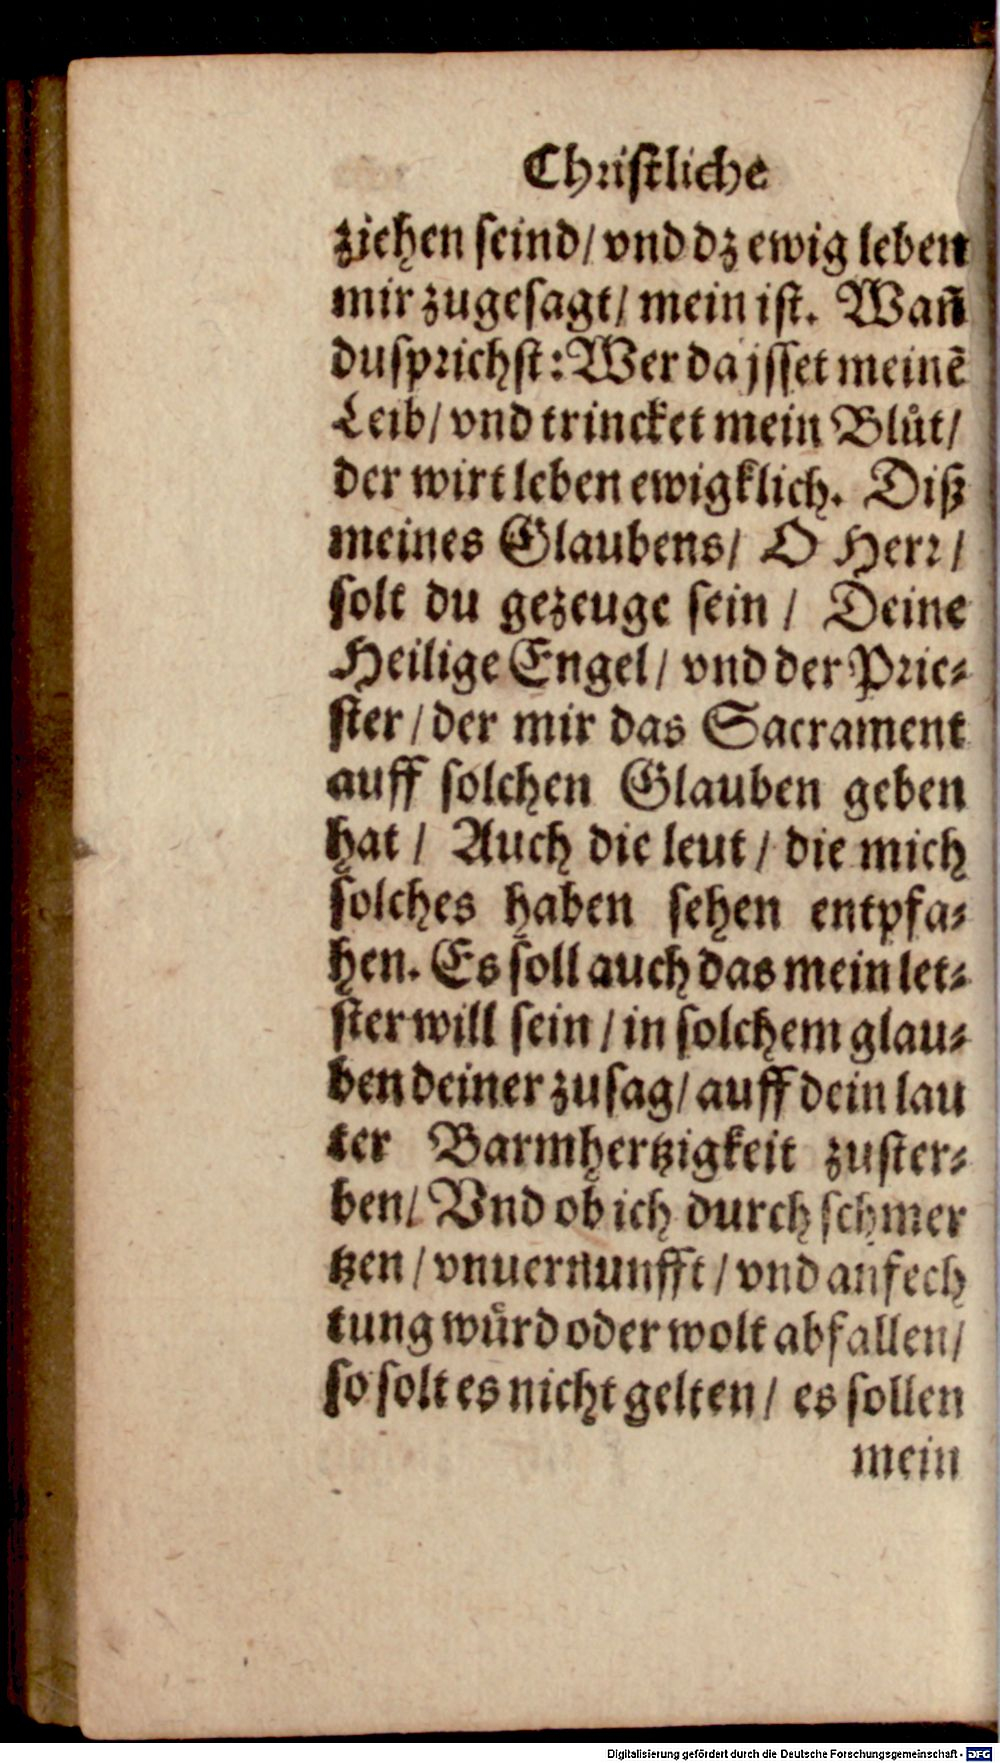 Christliche
ziehen seind/ vnd dz ewig leben
mir zugesagt/ mein ist. Wañ
du sprichst: Wer da jsset meinē
Leib/ vnd trincket mein Blůt/
der wirt leben ewigklich. Diß
meines Glaubens/ O Herr/
solt du gezeuge sein/ Deine
Heilige Engel/ vnd der Prie⸗
ster/ der mir das Sacrament
auff solchen Glauben geben
hat/ Auch die leut/ die mich
solches haben sehen entpfa⸗
hen. Es soll auch das mein let⸗
ster will sein/ in solchem glau⸗
ben deiner zusag/ auff dein lau
ter Barmhertzigkeit zuster⸗
ben/ Vnd ob ich durch schmer
tzen/ vnuernunfft/ vnd anfech
tung wůrd oder wolt abfallen/
so solt es nicht gelten/ es sollen
mein
Digitalisierung gefördert durch die Deutsche Forschungsgemeinschaft - DFG